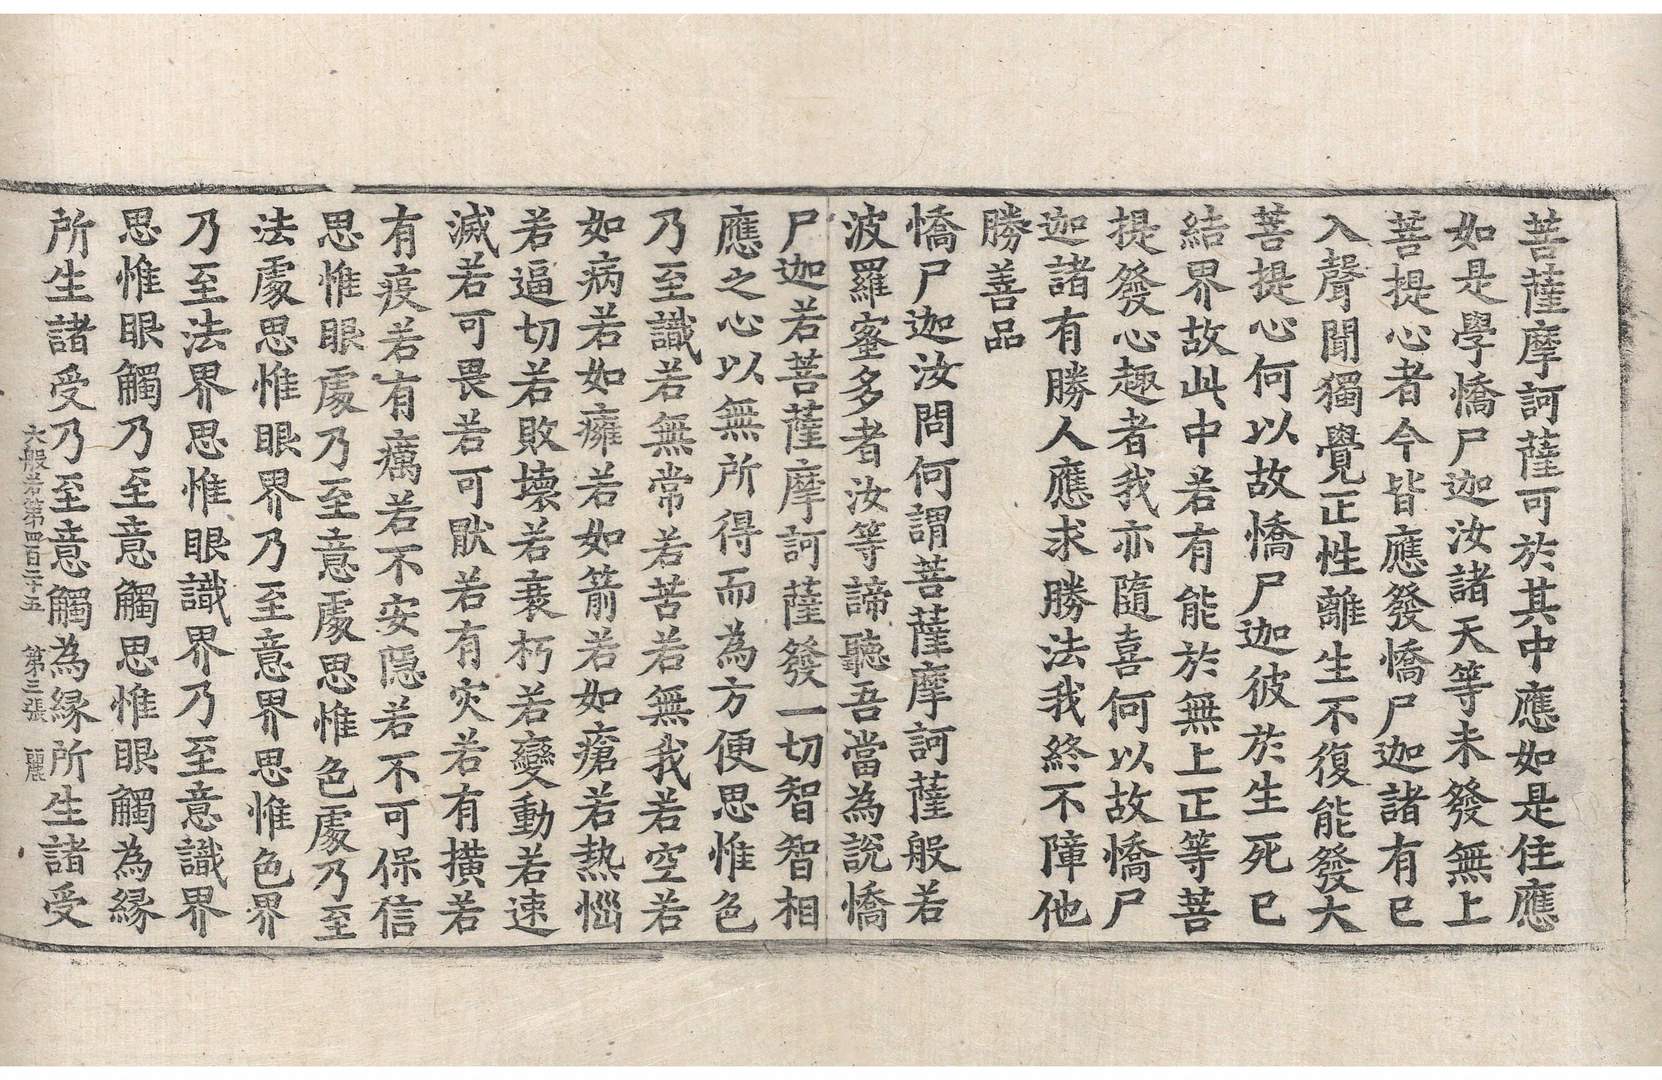 菩薩摩訶薩可於其中應如是住應
如是學憍尸迦汝諸天等未發無上
菩提心者今皆應發憍尸迦諸有已
入聲聞獨覺正性離生不復能發大
菩提心何以故憍尸迦彼於生死已
結界故此中若有能於無上正等菩
提發心趣者我亦隨喜何以故憍尸
迦諸有勝人應求勝法我終不障他
勝善品
憍尸迦汝問何謂菩薩摩訶薩般若
波羅蜜多者汝等諦聽吾當為說憍
尸迦若菩薩摩訶薩發一切智智相
應之心以無所得而為方便思惟色
乃至識若無常若苦若無我若空若
如病若如癰若如箭若如瘡若熱惱
若逼切若敗壞若衰朽若變動若速
滅若可畏若可猒若有灾若有橫若
有疫若有癘若不安隠若不可保信
思惟眼處乃至意處思惟色處乃至
法處思惟眼界乃至意界思惟色界
乃至法界思惟眼識界乃至意識界
思惟眼觸乃至意觸思惟眼觸為緣
所生諸受乃至意觸為緣所生諸受
大般若第四百二十五 第三張 麗